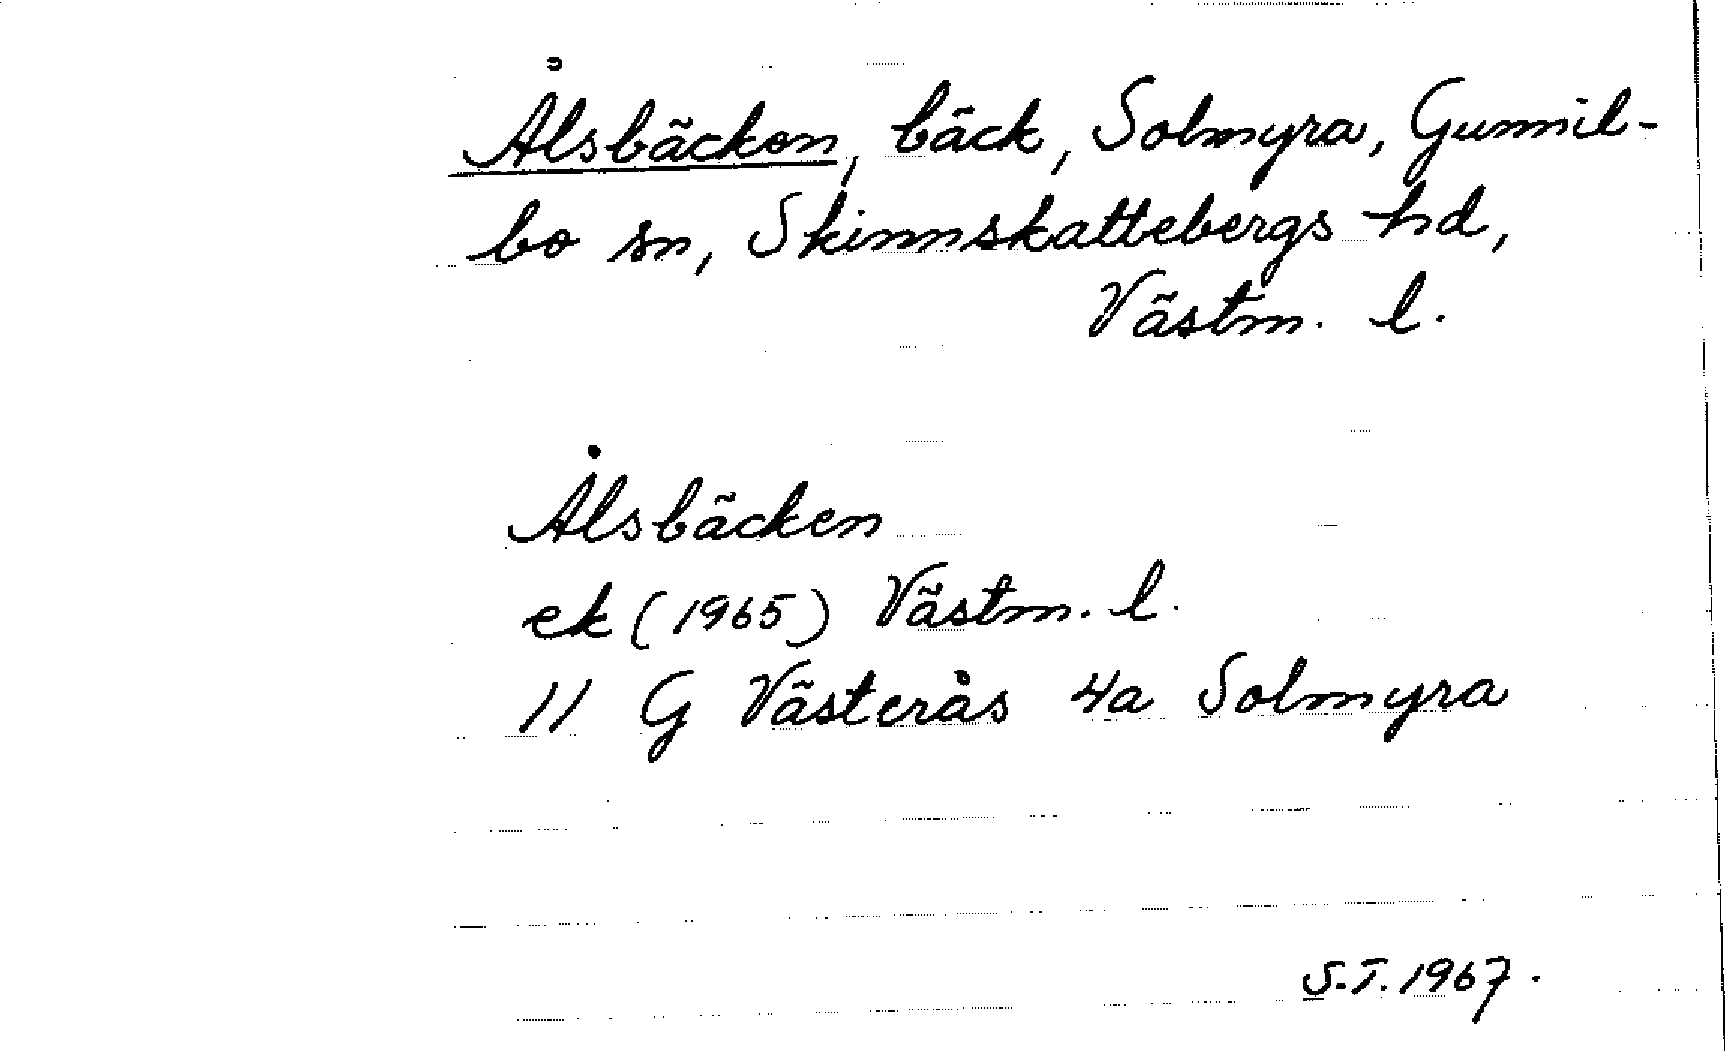 Ålsbäcken, bäck, Solmyra, Gunnil-
bo sn, Skinnskattebergs hd,
Västm. l.
Ålsbäcken
ek (1965) Västm. l.
11 G Västerås 4a Solmyra
S.T. 1967.